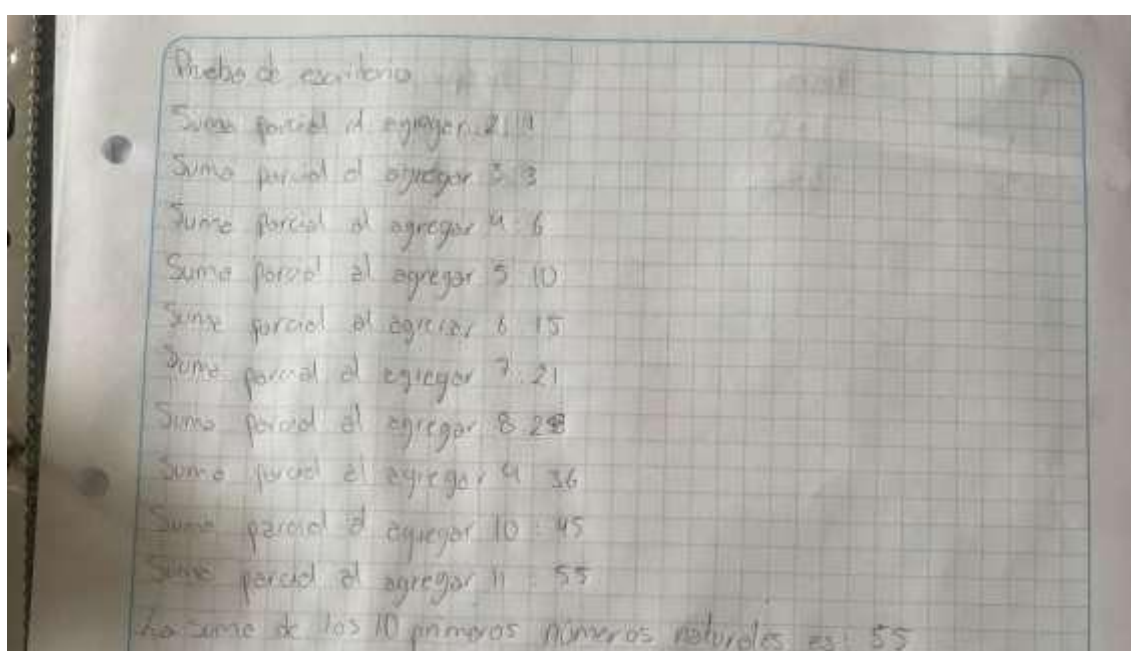 Prueba de escritorio
Suma parcial al agregar 2: 1
Suma parcial al agregar 3: 3
Suma parcial al agregar 4: 6
Suma parcial al agregar 5 10
Suma parcial al agregar 6 15
Suma parcial al agregar 7: 21
Suma parcial al agregar 8 28
Suma parcial al agregar 9 36
Suma parcial al agregar 10: 45
Suma parcial al agregar 11: 55
La suma de los 10 primeros números naturales es: 55